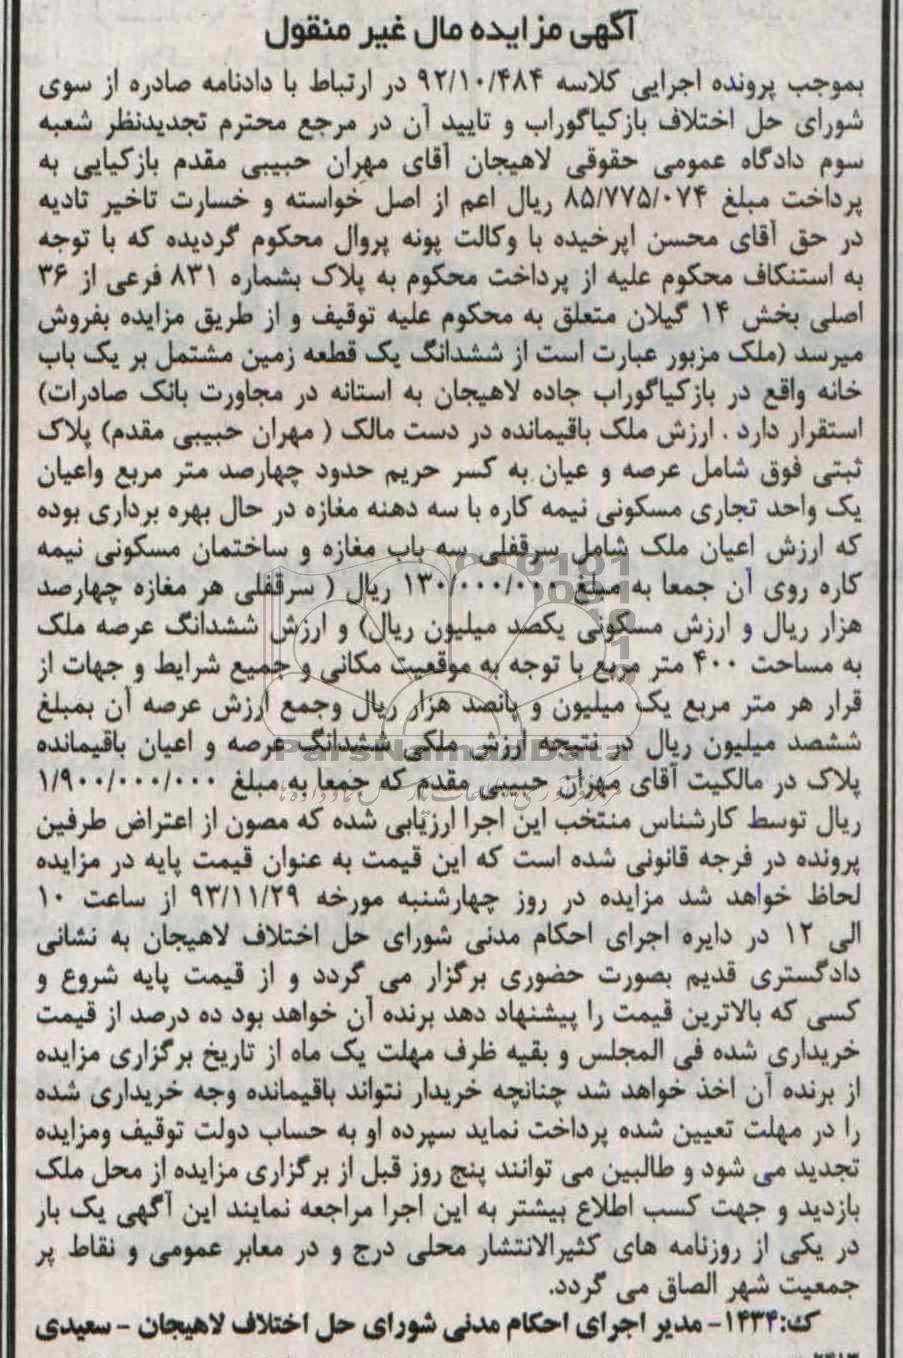 آگهی مزایده مال غیر منقول
بموجب پرونده اجرایی کلاسه ۹۲/۱۰/۴۸۴ در ارتباط با دادنامه صادره از سوی
شورای حل اختلاف بازکیاگوراب و تایید آن در مرجع محترم تجدیدنظر شعبه
سوم دادگاه عمومی حقوقی لاهیجان آقای مهران حبیبی مقدم بازکیایی به
پرداخت مبلغ ۸۵/۷۷۵/۰۷۴ ریال اعم از اصل خواسته و خسارت تاخیر تادیه
در حق آقای محسن اپرخیده با وکالت پونه پروال محکوم گردیده که با توجه
به استنکاف محکوم علیه از پرداخت محکوم به پلاک بشماره ۸۳۱ فرعی از ۳۶
اصلی بخش ۱۴ گیلان متعلق به محکوم علیه توقیف و از طریق مزایده بفروش
میرسد (ملک مزبور عبارت است از ششدانگ یک قطعه زمین مشتمل بر یک باب
خانه واقع در بازکیاگوراب جاده لاهیجان به استانه در مجاورت بانک صادرات)
استقرار دارد . ارزش ملک باقیمانده در دست مالک ( مهران حبیبی مقدم) پلاک
ثبتی فوق شامل عرصه و عیان به کسر حریم حدود چهارصد متر مربع واعیان
یک واحد تجاری مسکونی نیمه کاره با سه دهنه مغازه در حال بهره برداری بوده
که ارزش اعیان ملک شامل سرقفلی سه باب مغازه و ساختمان مسکونی نیمه
کاره روی آن جمعا به مبلغ ۱۳۰/۰۰۰/۰۰۰ ریال ( سرقفلی هر مغازه چهارصد
هزار ریال و ارزش مسکونی یکصد میلیون ریال) و ارزش ششدانگ عرصه ملک
به مساحت ۴۰۰ متر مربع با توجه به موقعیت مکانی و جمیع شرایط و جهات از
قرار هر متر مربع یک میلیون و پانصد هزار ریال وجمع ارزش عرصه آن بمبلغ
ششصد میلیون ریال در نتیجه ارزش ملکی ششدانگ عرصه و اعیان باقیمانده
ParsNamadData
پلاک در مالکیت آقای مهران حبیبی مقدم که جمعا به مبلغ ۱/۹۰۰/۰۰۰/۰۰۰
ریال توسط کارشناس منتخب این اجرا ارزیابی شده که مصون از اعتراض طرفین
پرونده در فرجه قانونی شده است که این قیمت به عنوان قیمت پایه در مزایده
لحاظ خواهد شد مزایده در روز چهارشنبه مورخه ۹۳/۱۱/۲۹ از ساعت ۱۰
الی ۱۲ در دایره اجرای احکام مدنی شورای حل اختلاف لاهیجان به نشانی
دادگستری قدیم بصورت حضوری برگزار می گردد و از قیمت پایه شروع و
کسی که بالاترین قیمت را پیشنهاد دهد برنده آن خواهد بود ده درصد از قیمت
خریداری شده فی المجلس و بقیه ظرف مهلت یک ماه از تاریخ برگزاری مزایده
از برنده آن اخذ خواهد شد چنانچه خریدار نتواند باقیمانده وجه خریداری شده
را در مهلت تعیین شده پرداخت نماید سپرده او به حساب دولت توقیف ومزایده
تجدید می شود و طالبین می توانند پنج روز قبل از برگزاری مزایده از محل ملک
بازدید و جهت کسب اطلاع بیشتر به این اجرا مراجعه نمایند این آگهی یک بار
در یکی از روزنامه های کثیرالانتشار محلی درج و در معابر عمومی و نقاط پر
جمعیت شهر الصاق می گردد.
ک:۱۴۳۴- مدیر اجرای احکام مدنی شورای حل اختلاف لاهیجان - سعیدی